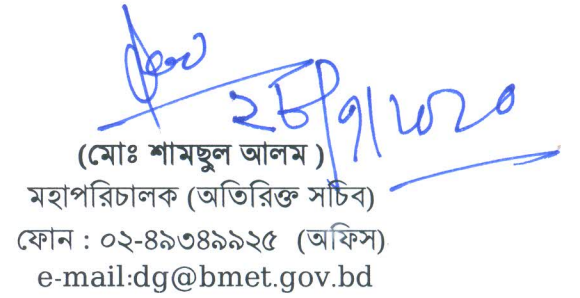 ২৮/৭/২০২০
(মোঃ শামছুল আলম )
মহাপরিচালক (অতিরিক্ত সচিব)
ফোন : ০২-৪৯৩৪৯৯২৫ (অফিস)
e-mail:dg@bmet.gov.bd